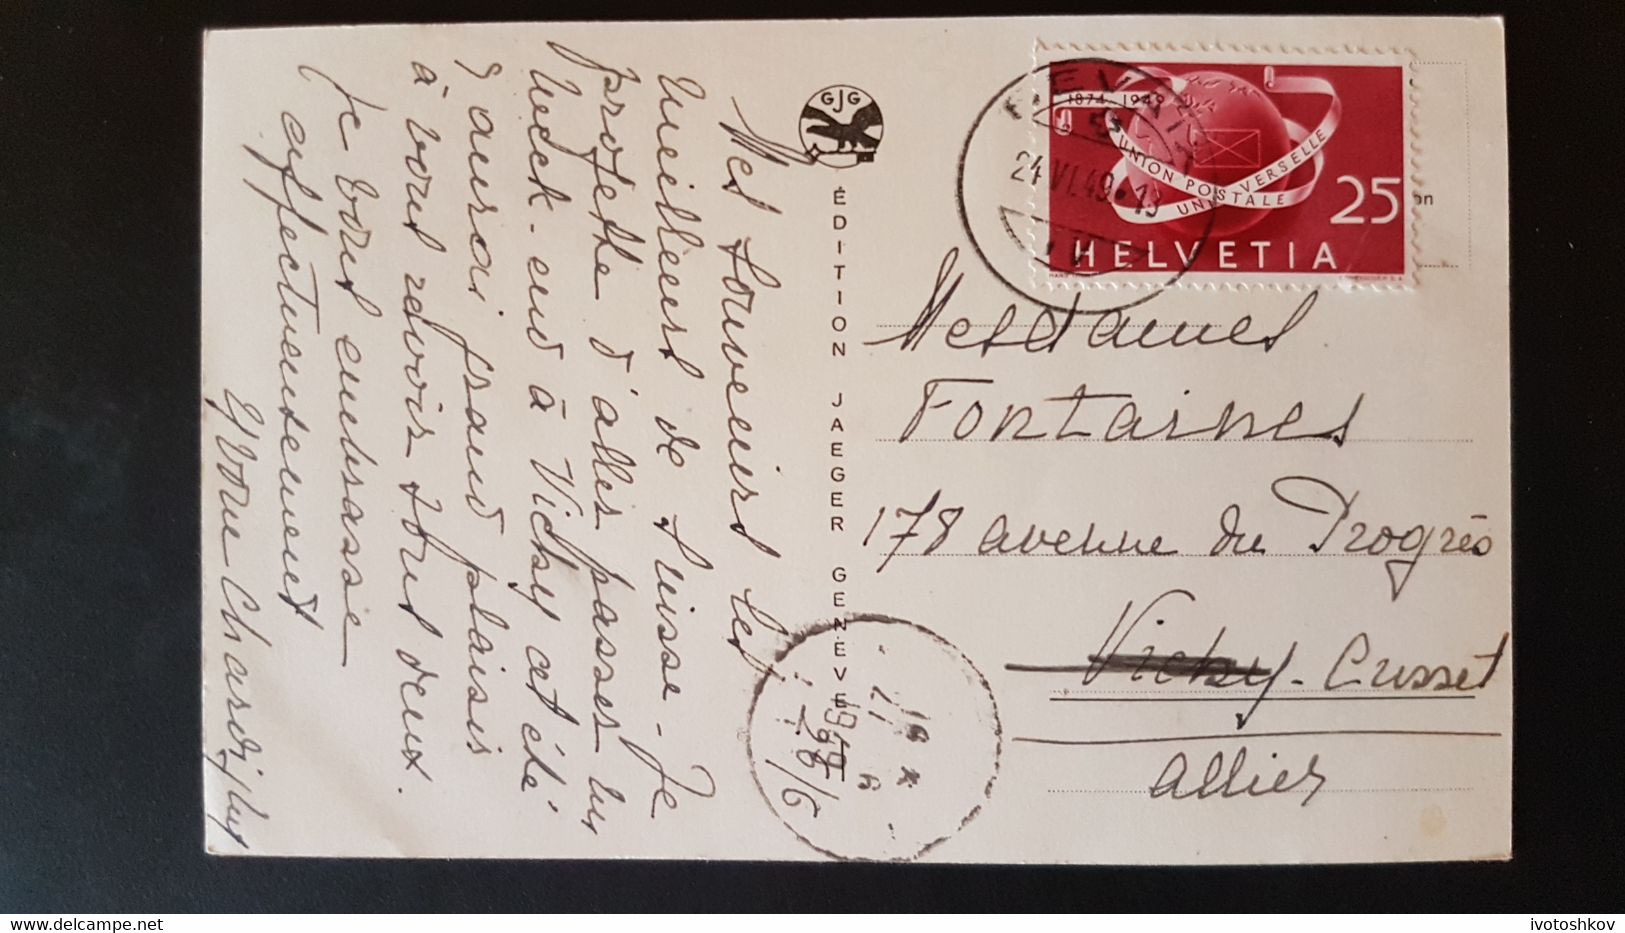 Mes souvenirs les
meilleurs de Suisse - Je
projette d'aller passer un
Week-end à Vichy cet été
J'aurai grand plaisir
à vous revoir tous deux.
Je vous embrasse
affectueusement
Yvonne
GJG
ÉDITION JAEGER GENÈVE
1874 - 1949
UNION POSTALE
UNIVERSELLE
25
HELVETIA
GENÈVE
24.VI.49
Mesdames
Fontaines
178 avenue du Progrès
Vichy - Cusset
Allier
ivotoshkov